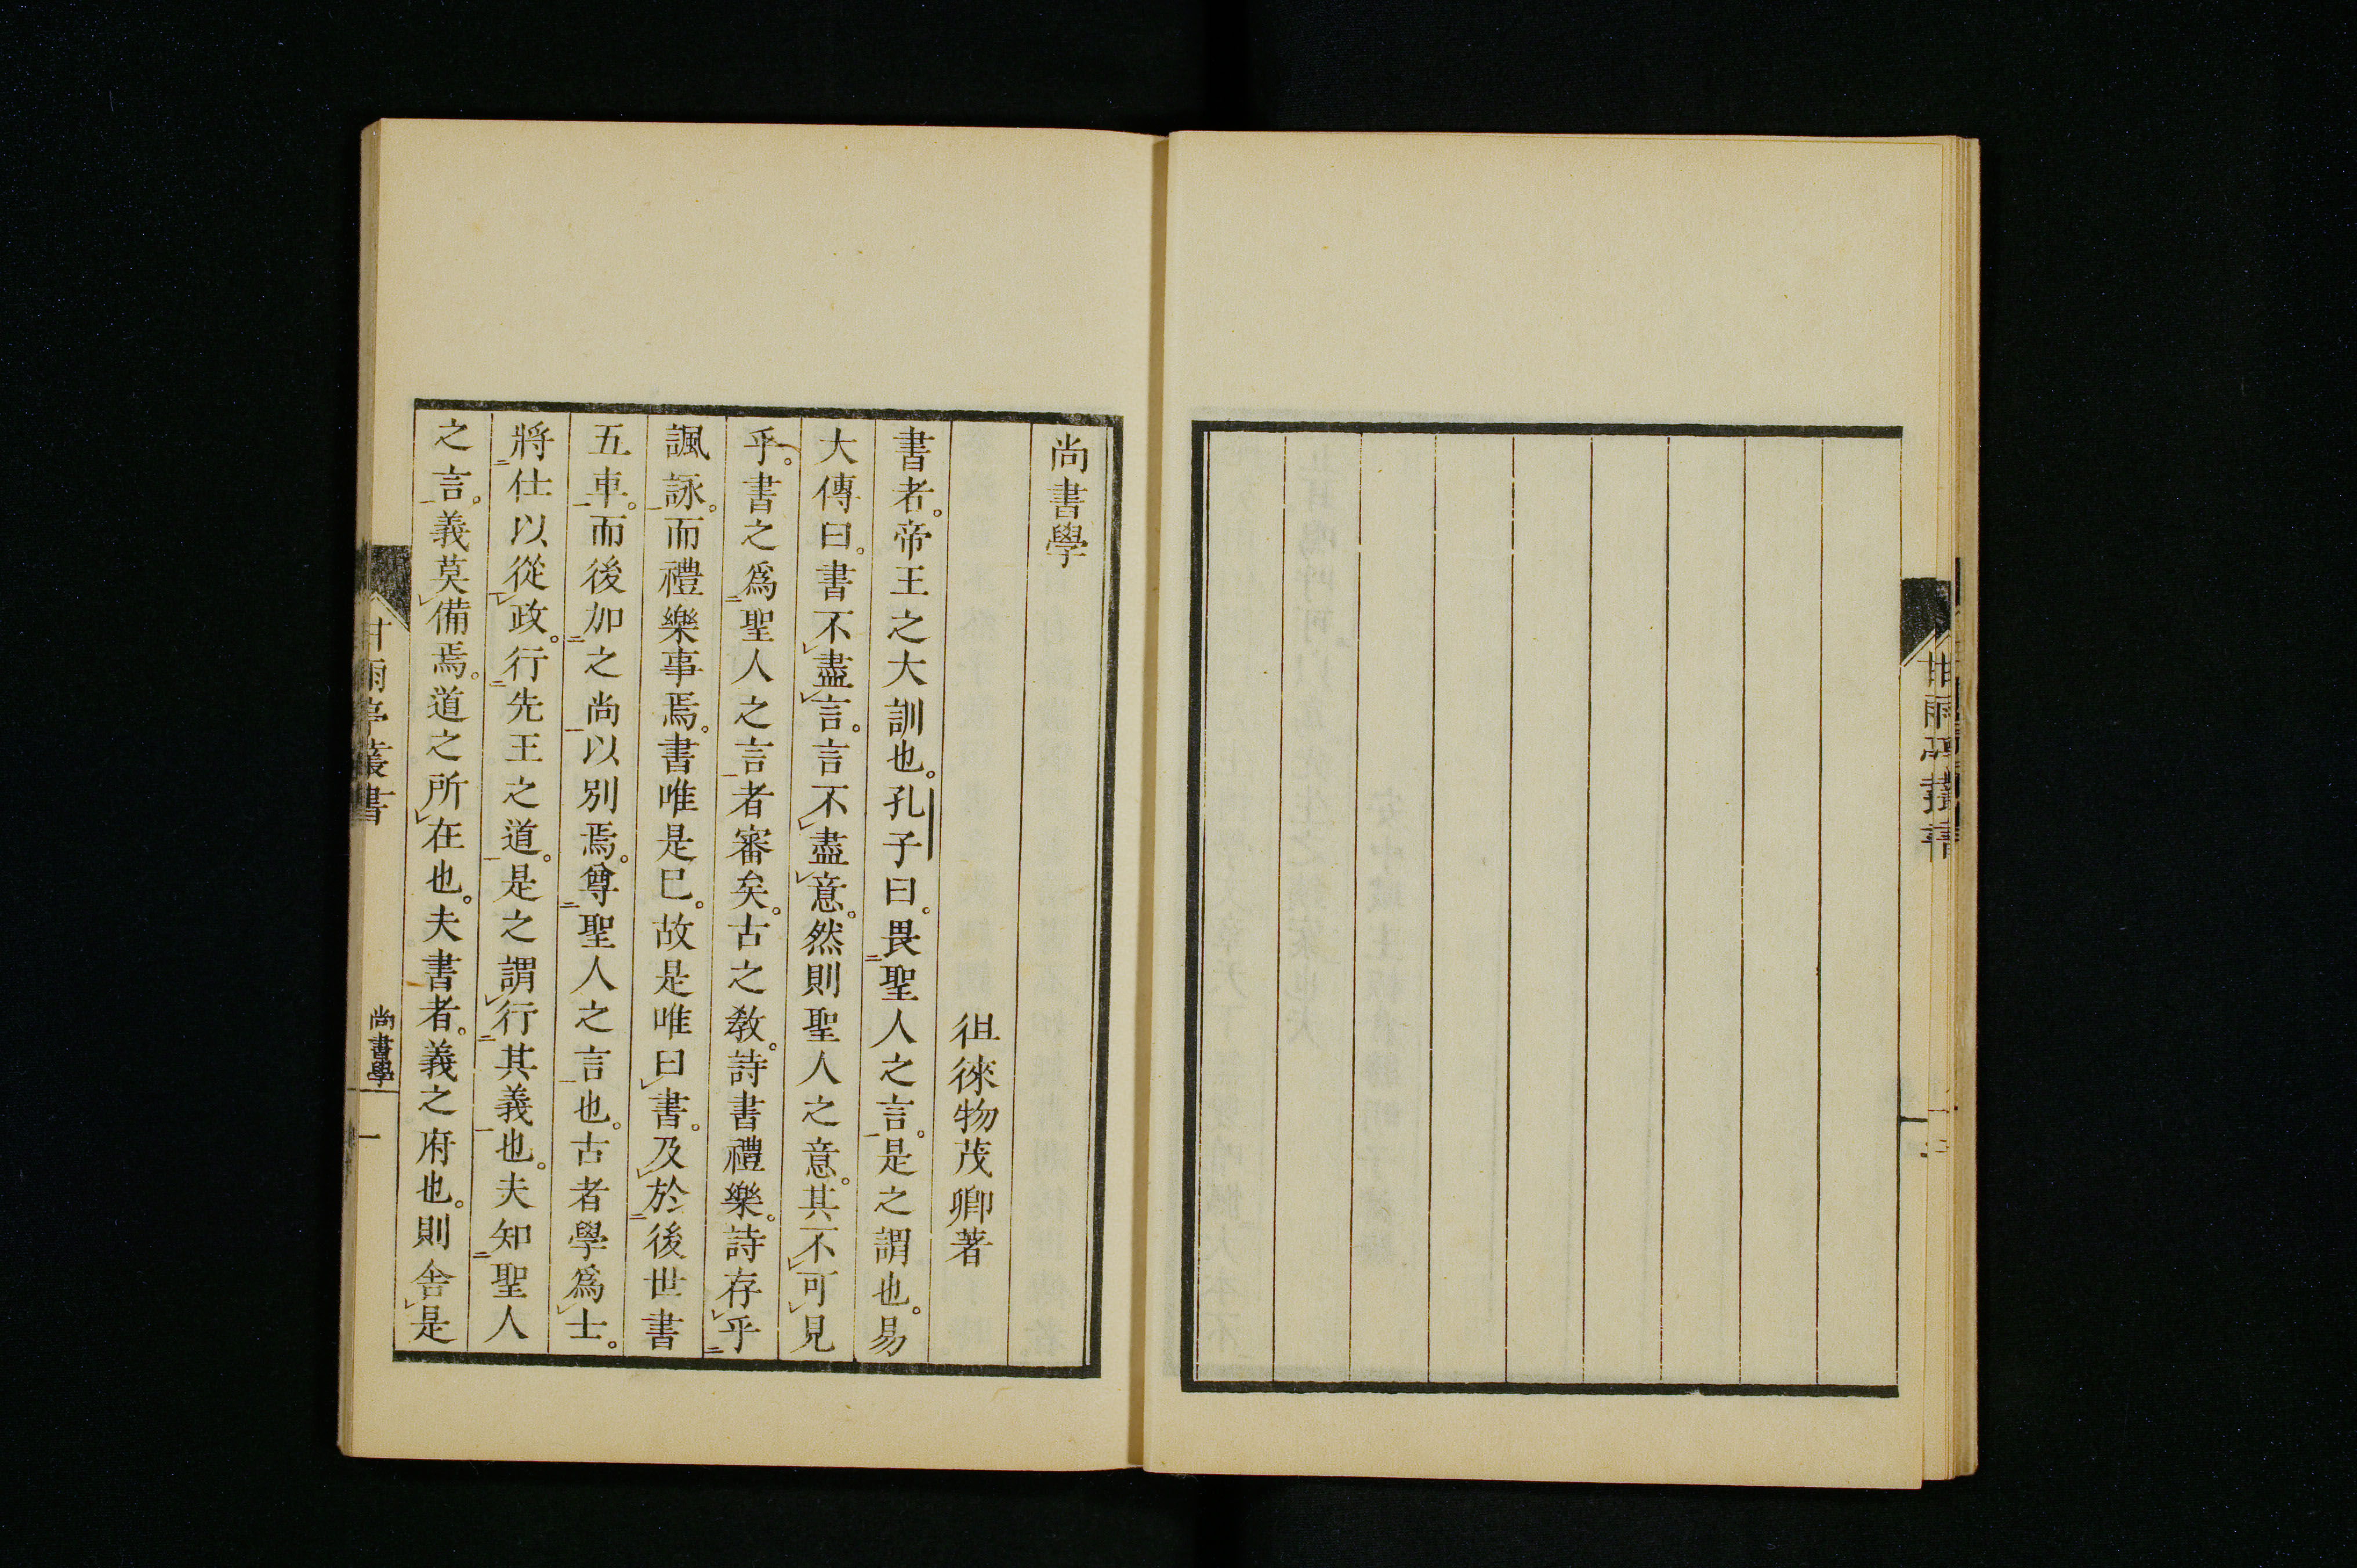 尚書學
徂徠物茂卿著
書者。帝王之大訓也。孔子曰。畏二聖人之言一。是之謂也。易
大傳曰。書不レ盡レ言。言不レ盡レ意。然則聖人之意。其不レ可レ見
乎。書之爲二聖人之言一者審矣。古之教。詩書禮樂。詩存レ乎二
諷詠一。而禮樂事焉。書唯是已。故是唯曰レ書。及レ於二後世書
五車一。而後加二之尚一以別焉。尊二聖人之言一也。古者學爲レ士。
將二仕以從一レ政。行二先王之道一。是之謂レ行二其義一也。夫知二聖人
之言一。義莫レ備焉。道之所レ在也。夫書者。義之府也。則舍レ是
甘雨亭叢書
尚書學
一
甘雨亭叢書